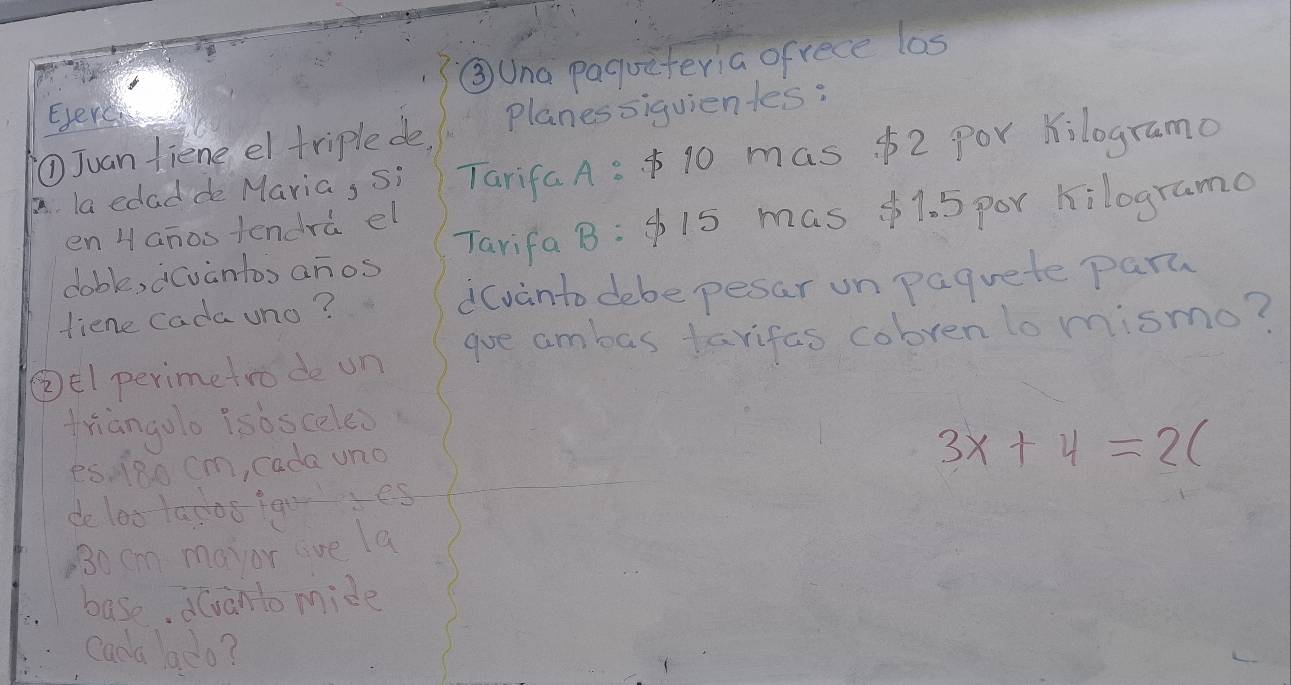 Ejerc
① Juan tiene el triple de
la edad de Maria, si
en 4 años tendrá el
doble, ¿cuántos años
tiene cada uno?
② El perimetro de un
triángulo isósceles
es 180 cm, cada uno
de los lados
30 cm mayor que la
base. ¿Cuanto mide
cada lado?
③ Una paqueteria ofrece los
planes siguientes:
Tarifa A: $ 10 mas $2 por Kilogramo
Tarifa B: $ 15 mas $1.5 por Kilogramo
¿Cuánto debe pesar un paquete para
que ambas tarifas cobren lo mismo?
3x + 4 = 2(